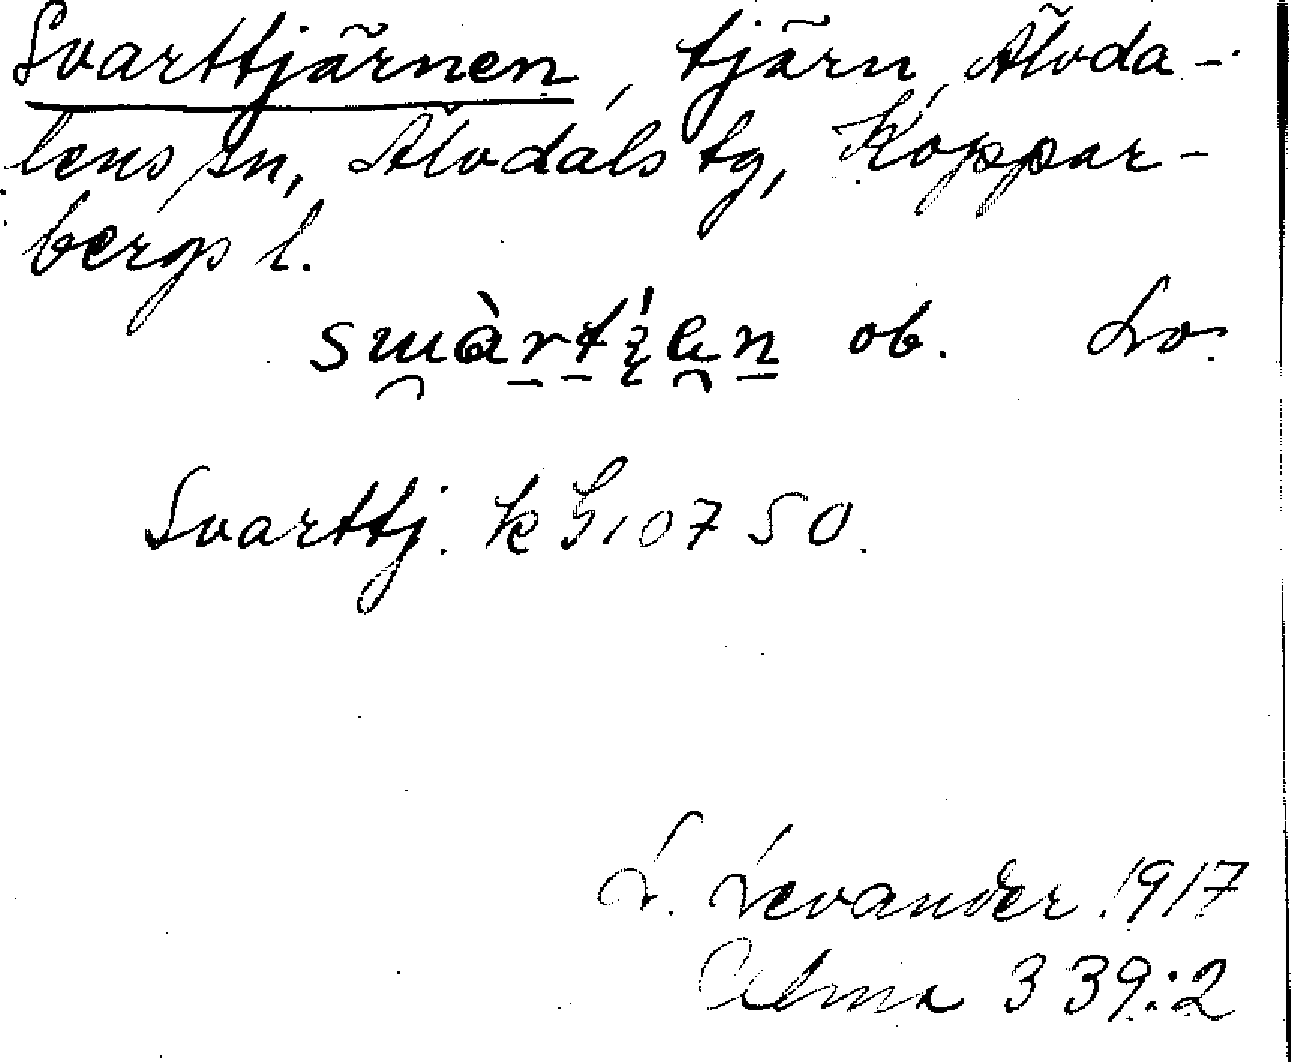 Svarttjärnen, tjärn, Älvda-
lens sn, Älvdals tg, Koppar-
bergs l.
ob. Lo.
Svarttj. k G 10750.
L. Levander 1917
Alma 339:2